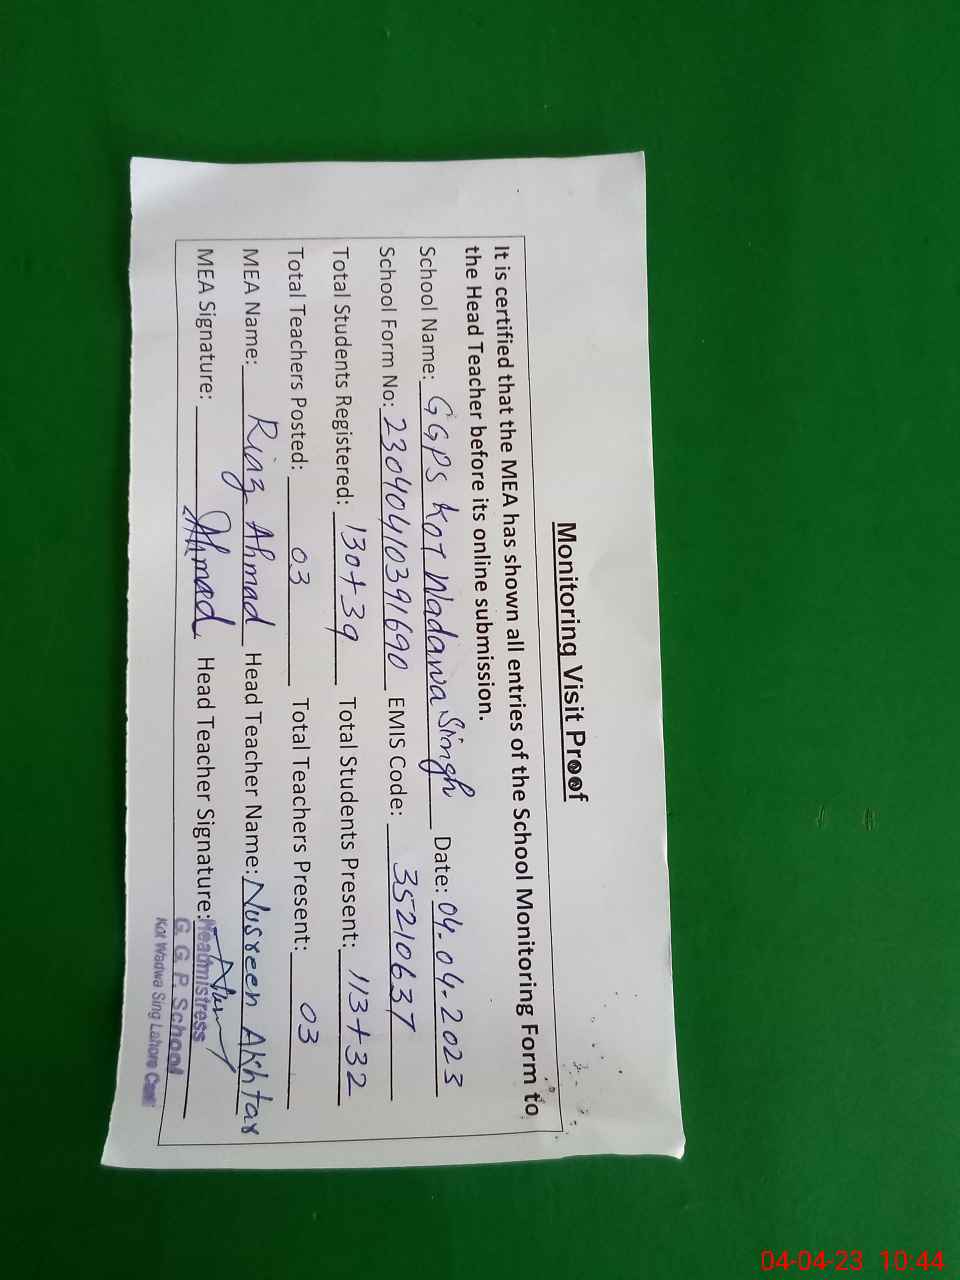 Monitoring Visit Proof
It is certified that the MEA has shown all entries of the School Monitoring Form to
the Head Teacher before its online submission.
School Name: GGPS Kot Wadawa Singh Date: 04.04.2023
School Form No: 23040410391690 EMIS Code: 35210637
Total Students Registered: 130+39 Total Students Present: 113+32
Total Teachers Posted: 03 Total Teachers Present: 03
MEA Name: Riaz Ahmad Head Teacher Name: Nusreen Akhtar
MEA Signature: Ahmad Head Teacher Signature:
Headmistress
G. G. P. School
Kot Wadwa Sing Lahore Cantt
04-04-23 10:44